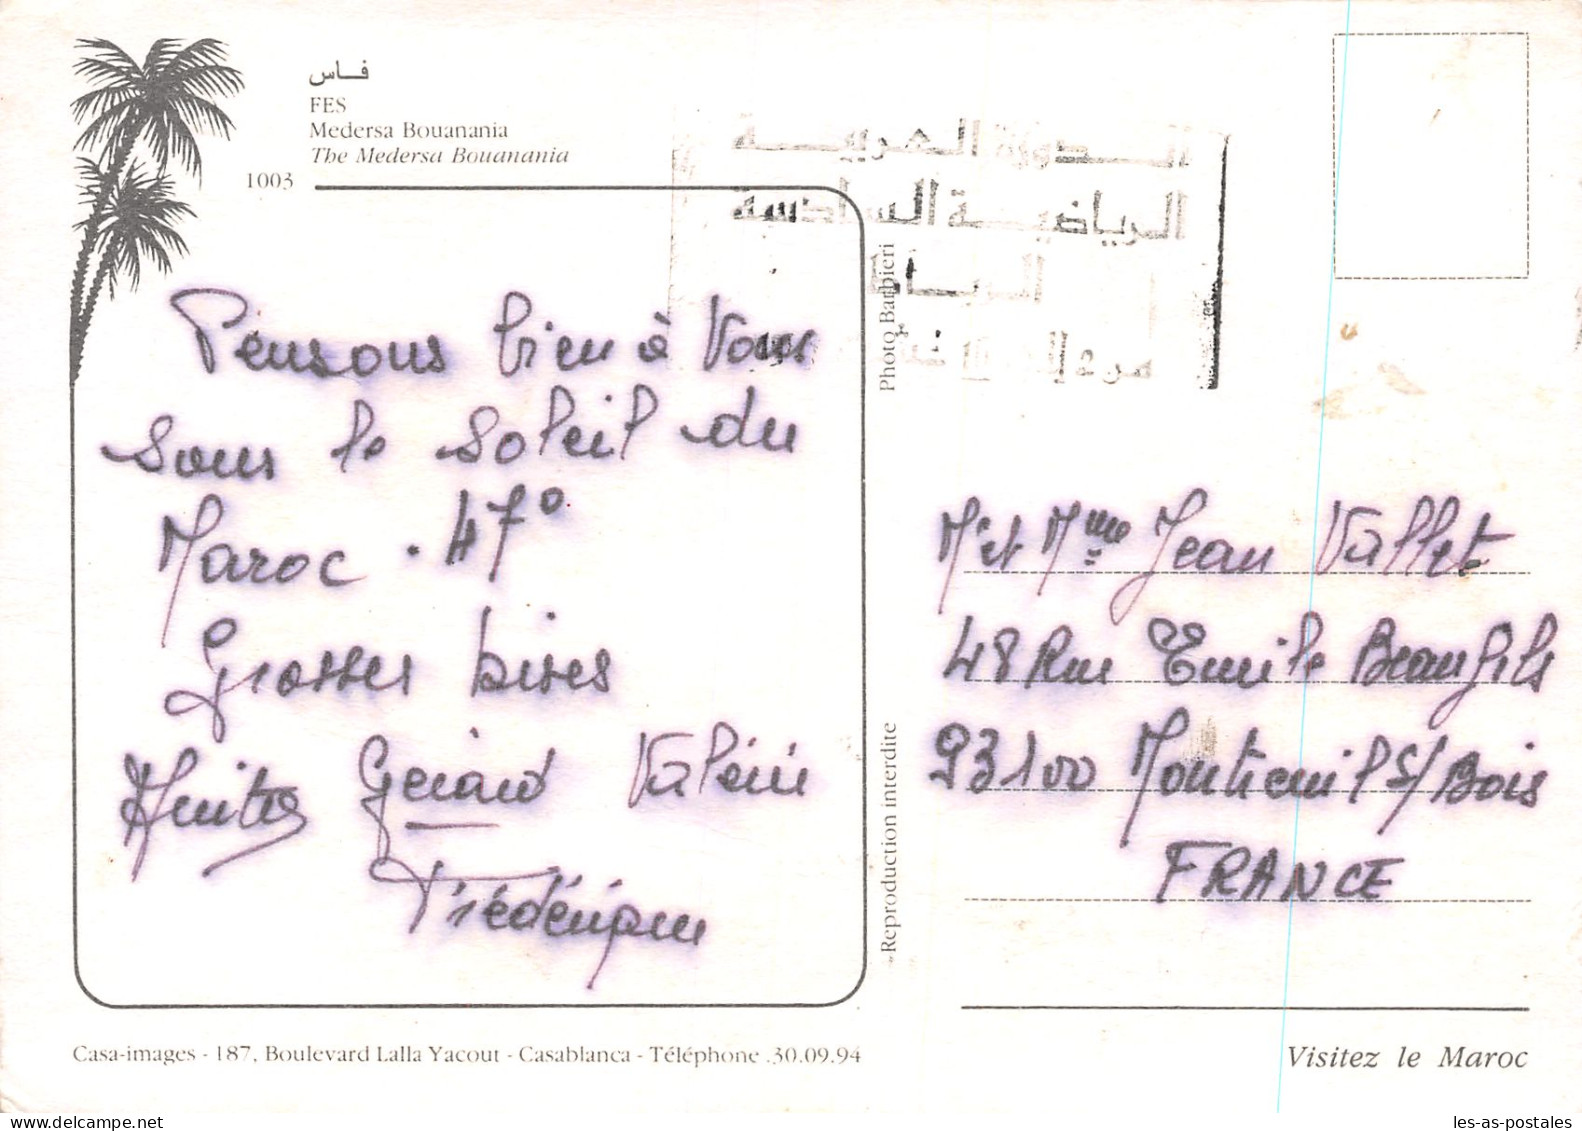 فـاس
FES
Medersa Bouanania
The Medersa Bouanania
1003
الـدورة العربيـة
الـرياضيـة السادسة
الربـاط
Pensons bien à Vous
sous le soleil du
Maroc . 47°
Grosses bises
Gérard Valérie
Frédérique
Photo Barbieri
Reproduction interdite
Mr et Mme Jean Vallet
48 Rue Emile Beaufils
93100 Montreuil s/Bois
FRANCE
Casa-images - 187, Boulevard Lalla Yacout - Casablanca - Téléphone .30.09.94
Visitez le Maroc
les-as-postales